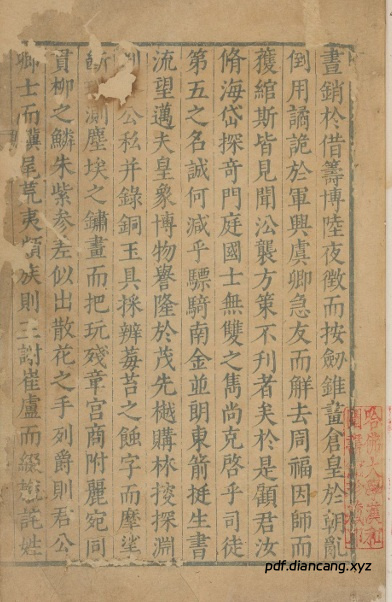 晝銷於借籌博陸夜徴而按劒錐畫倉皇於朝亂
倒用譎詭於軍興虞卿急友而解去周福因師而
獲綰斯皆見聞㳂襲方策不刋者矣於是顧君汝
脩海岱探奇門庭國士無雙之雋尚克啓乎司徒
第五之名誠何減乎驃騎南金並朗東箭挺生書
流望邁夫皇象博物譽隆於茂先樾購林搜探淵
公私并錄銅玉具採辨莓苔之蝕字而摩挲
斷 測塵埃之鏽畫而把玩殘章宫商附麗宛同
貫柳之鱗朱紫參差似出散花之手列爵則君公
卿士而驥尾荒夷頫族則王謝崔盧而綴 詫姓
哈佛大學漢和
圖書館
pdf.diancang.xyz